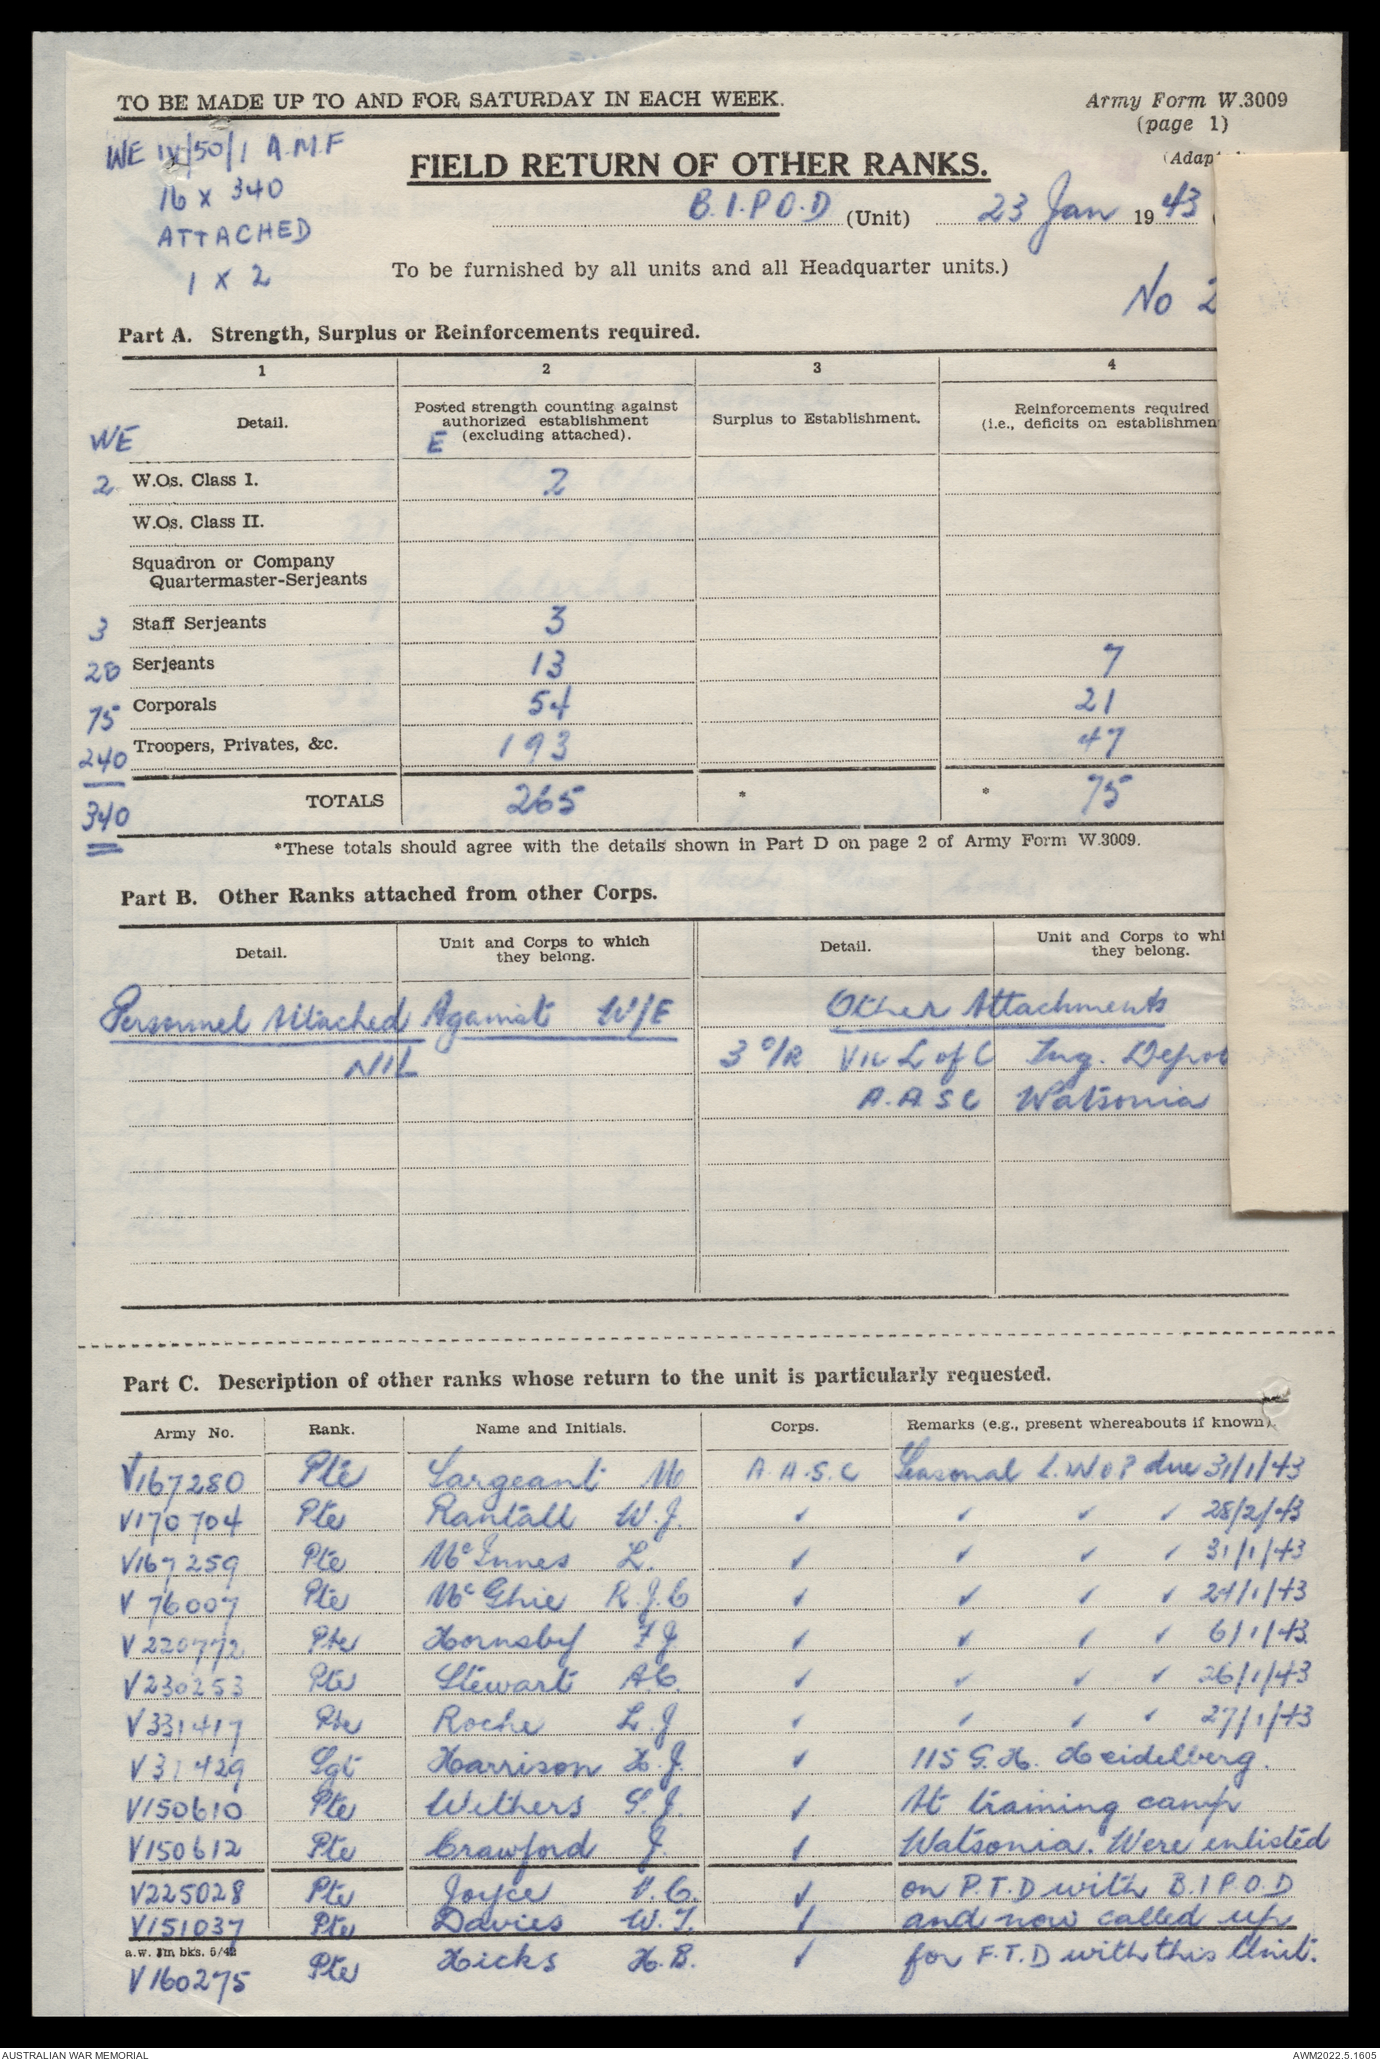 TO BE MADE UP TO AND FOR SATURDAY IN EACH WEEK.
Army Form W.3009
(page 1)
(Adap
WE IV/50/1 A.M.F
16 x 340
ATTACHED
1 x 2
FIELD RETURN OF OTHER RANKS.
B.I.P.O.D (Unit) 23 Jan 1943
To be furnished by all units and all Headquarter units.)
No 2
Part A. Strength, Surplus or Reinforcements required.
1 2 3 4
Detail. Posted strength counting against authorized establishment (excluding attached). Surplus to Establishment. Reinforcements required (i.e., deficits on establishmen
WE E
2 W.Os. Class I. 2
W.Os. Class II.
Squadron or Company
Quartermaster-Serjeants
3 Staff Serjeants 3
20 Serjeants 13 7
75 Corporals 54 21
240 Troopers, Privates, &c. 193 47
340 TOTALS 265 * * 75
*These totals should agree with the details shown in Part D on page 2 of Army Form W.3009.
Part B. Other Ranks attached from other Corps.
Detail. Unit and Corps to which they belong. Detail. Unit and Corps to whi they belong.
Personnel Attached Against W/E Other Attachments
NIL 3 O/R Vic L of C Trg. Depot
A.A.S.C Watsonia
Part C. Description of other ranks whose return to the unit is particularly requested.
Army No. Rank. Name and Initials. Corps. Remarks (e.g., present whereabouts if known)
V167280 Pte Sargeant M A.A.S.C Seasonal L.W.O.P due 31/1/43
V170704 Pte Rantall W.J. ✓ ✓ ✓ ✓ 28/2/43
V167259 Pte McInnes L. ✓ ✓ ✓ ✓ 31/1/43
V 76007 Pte McGhie R.J.C ✓ ✓ ✓ ✓ 24/1/43
V220772 Pte Hornsby F J. ✓ ✓ ✓ ✓ 6/1/43
V230253 Pte Stewart A.C. ✓ ✓ ✓ ✓ 26/1/43
V331417 Pte Roche L.J ✓ ✓ ✓ ✓ 27/1/43
V31429 Sgt Harrison H.J. ✓ 115 G.H. Heidelberg.
V150610 Pte Withers S.J. ✓ At training camp
V150612 Pte Crawford J. ✓ Watsonia. Were enlisted
V225028 Pte Joyce V.C. ✓ on P.T.D with B.I.P.O.D
V151037 Pte Davies W.T. ✓ and now called up
a.w. 1m bks. 5/42
V160275 Pte Hicks H.B. ✓ for F.T.D with this Unit.
AUSTRALIAN WAR MEMORIAL
AWM2022.5.1605